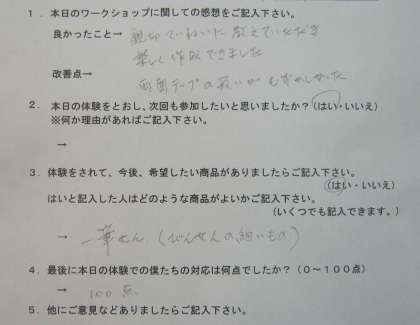 1．本日のワークショップに関しての感想をご記入下さい。
良かったこと→ 親切ていねいに教えていただき
楽しく作成できました
改善点→ 両面テープの扱いがむずかしかった
2．本日の体験をとおし、次回も参加したいと思いましたか？（はい・いいえ）
※何か理由があればご記入下さい。
→
3．体験をされて、今後、希望したい商品がありましたらご記入下さい。
（はい・いいえ）
はいと記入した人はどのような商品がよいかご記入下さい。
（いくつでも記入できます。）
→ 一筆せん（びんせんの細いもの）
4．最後に本日の体験での僕たちの対応は何点でしたか？（0～100点）
→ 100点
5．他にご意見などありましたらご記入下さい。